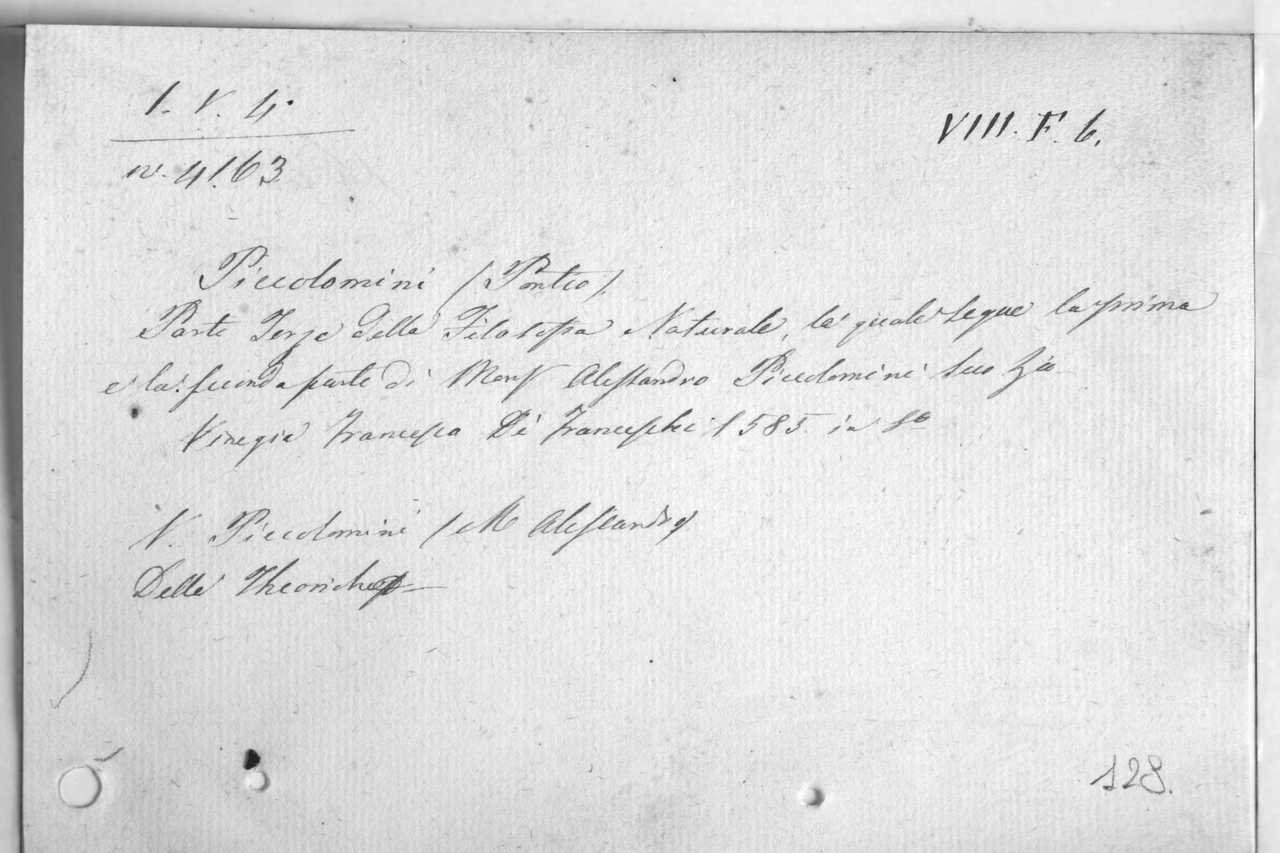 I. V. 4.
VIII. F. 6.
n. 4163
Piccolomini (Portio)
Parte Terza della Filosofia Naturale, la quale segue la prima
e la seconda parte di Mons Alessandro Piccolomini suo Zio
Vinegia Francesco De Franceschi 1585 in 8o
V. Piccolomini (M Alessandro)
Delle Theoriche
128.